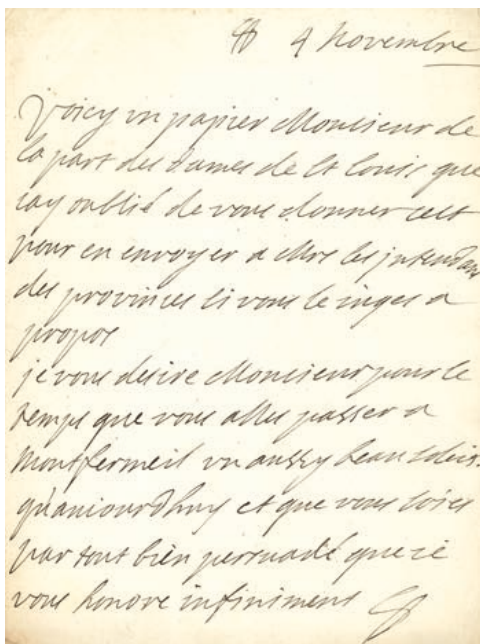 4 novembre
voicy un papier Monsieur de
la part des dames de St Louis que
iay oublié de vous donner cest
pour en envoyer a Mrs les jntendans
des provinces si vous le iuges a
propos
je vous desire Monsieur pour le
temps que vous alles passer a
montfermeil un aussy beau soleil
qu'auiourdhuy et que vous soies
par tout bien persuadé que ie
vous honore infiniment